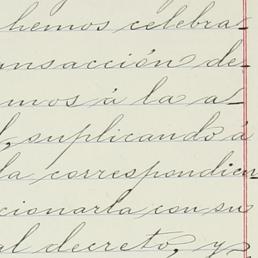 hemos celebra-
nsacción de-
mos á la a-
, suplicando á
la correspondien
cionarla con su
al decreto, y